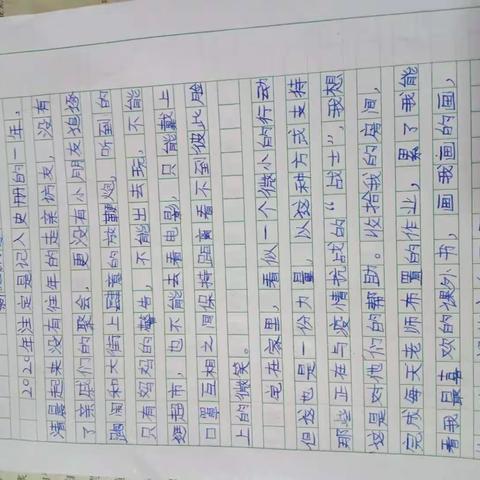 2020年注定是记入史册的一年，
清晨起来没有往年的走亲访友，没有
了亲戚们的聚会，更没有小朋友追逐
闹和大街上的放鞭炮，听到的
只有妈妈的警告，不能出去玩，不能
逛超市，也不能去看电影，只能戴上
口罩互相之间保持距离看不到彼此脸
上的微笑。
宅在家里，看似一个微小的行动
但这也是一份力量，以这种方式支持
那些正在与疫情抗战的“战士”，我想
这是对他们的帮助。收拾我的房间，
完成每天老师布置的作业，累了我能
看我最喜欢的课外书，画我画的画，